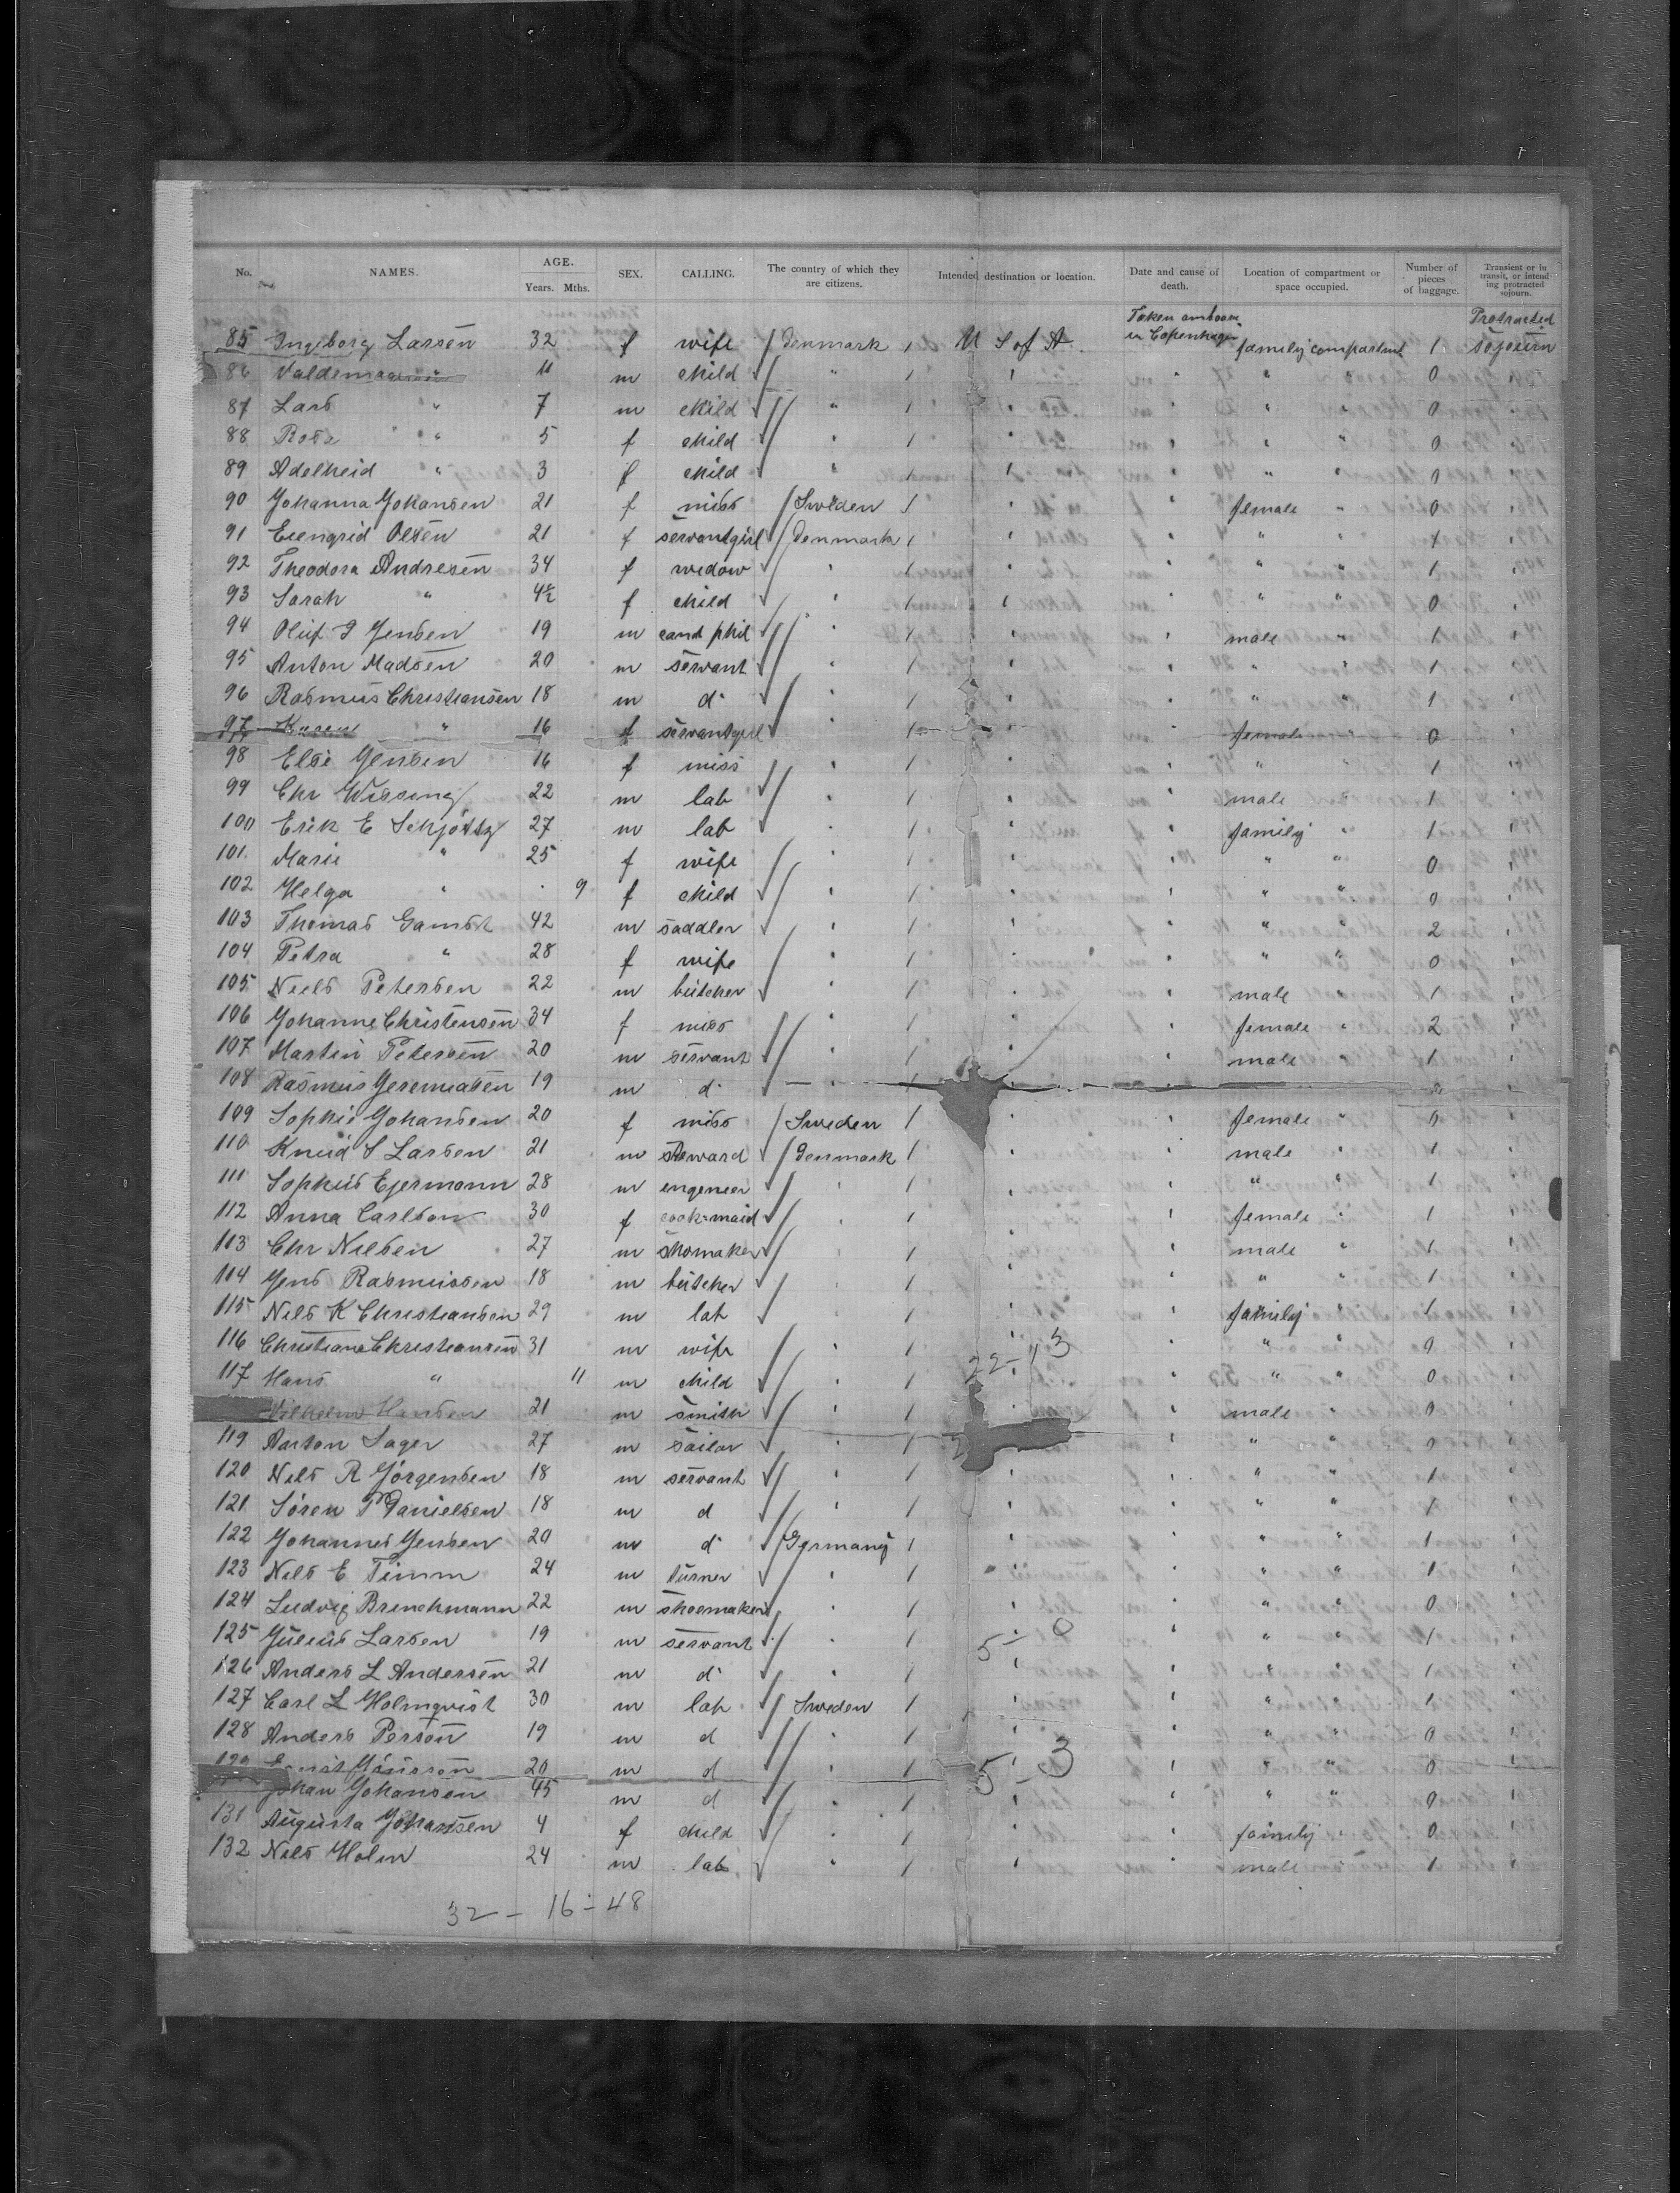 No. NAMES. AGE. Years. Mths. SEX. CALLING. The country of which they are citizens. Intended destination or location. Date and cause of death. Location of compartment or space occupied. Number of pieces of baggage. Transient or in transit, or intending protracted sojourn.
85 Ingeborg Larsen 32 f wife / Denmark / U S of A. Taken onboard in Copenhagen family compartment 1 Protracted sojourn
86 Valdemar " 11 m child " / " " " 0 "
87 Lars " 7 m child " / " " " 0 "
88 Rosa " 5 f child " / " " " 0 "
89 Adelheid " 3 f child " / " " " 0 "
90 Johanna Johansen 21 f miss / Sweden / " " female " 0 "
91 Eiengrid Olsen 21 f servantgirl / Denmark / " " " " 1 "
92 Theodora Andresen 34 f widow " / " " " " 1 "
93 Sarah " 4½ f child " / " " " " 0 "
94 Oluf J Jensen 19 m cand phil " / " " male " 1 "
95 Anton Madsen 20 m servant " / " " " " 1 "
96 Rasmus Christiansen 18 m do " / " " " " 1 "
97 Karen " 16 f servantgirl " / " female " 0 "
98 Else Jensen 16 f miss " / " " " " 1 "
99 Chr Wissing 22 m lab " / " " male " 1 "
100 Erik E Schjøttz 27 m lab " / " " family " 1 "
101. Marie " 25 f wife " / " " " " 0 "
102 Helga " 9 f child " / " " " " 0 "
103 Thomas Gamst 42 m saddler " / " " " " 2 "
104 Petra " 28 f wife " / " " " " 0 "
105 Niels Petersen 22 m butcher " / " " male " 1 "
106 Johanne Christensen 34 f miss " / " " female " 2 "
107 Martin Petersen 20 m servant " / " " male " 1 "
108 Rasmus Jeremiasen 19 m do " / "
109 Sophie Johansen 20 f miss / Sweden / " " female " 0 "
110 Knud S Larsen 21 m steward / Denmark / " " male " 1 "
111 Sophus Ejermann 28 m engeneer " / " " " " 1 "
112 Anna Carlson 30 f cook-maid " / " " female " 1 "
113 Chr Nielsen 27 m shomaker " / " " male " 1 "
114 Jens Rasmussen 18 m butcher " / " " " " 1 "
115 Nils K Christiansen 29 m lab " / " " family " 1 "
116 Christiane Christiansen 31 m wife " / " " " 0 "
22-13
117 Hans " 11 m child " / " " " 0 "
Vilhelm Hansen 21 m smith " / " male " 0 "
119 Anton Lager 27 m sailor " / " " " 0 "
120 Nils R Jørgensen 18 m servant " / " " " 1 "
121 Søren P Danielsen 18 m d " / " " " 1 "
122 Johannes Jensen 20 m do / Germany / " " " " 1 "
123 Nils E Timm 24 m turner " / " " " 1 "
124 Ludvig Brenchmann 22 m shoemaker " / " " " " 0 "
125 Julius Larsen 19 m servant " / " " " " 1 "
5 - 0
126 Anders L Andersen 21 m do " / " " " " 1 "
127 Carl L Holmqvist 30 m lab / Sweden / " " " " 1 "
128 Anders Person 19 m d " / " " " 0 "
5 - 3
129 20 m d " / " " " " 0 "
Johan Johansen 45 m d " / " " " " 0 "
131 Augusta Johanssen 4 f child " / " " family " 0 "
132 Nils Holm 24 m lab " / " " male " 1 "
32 - 16 = 48